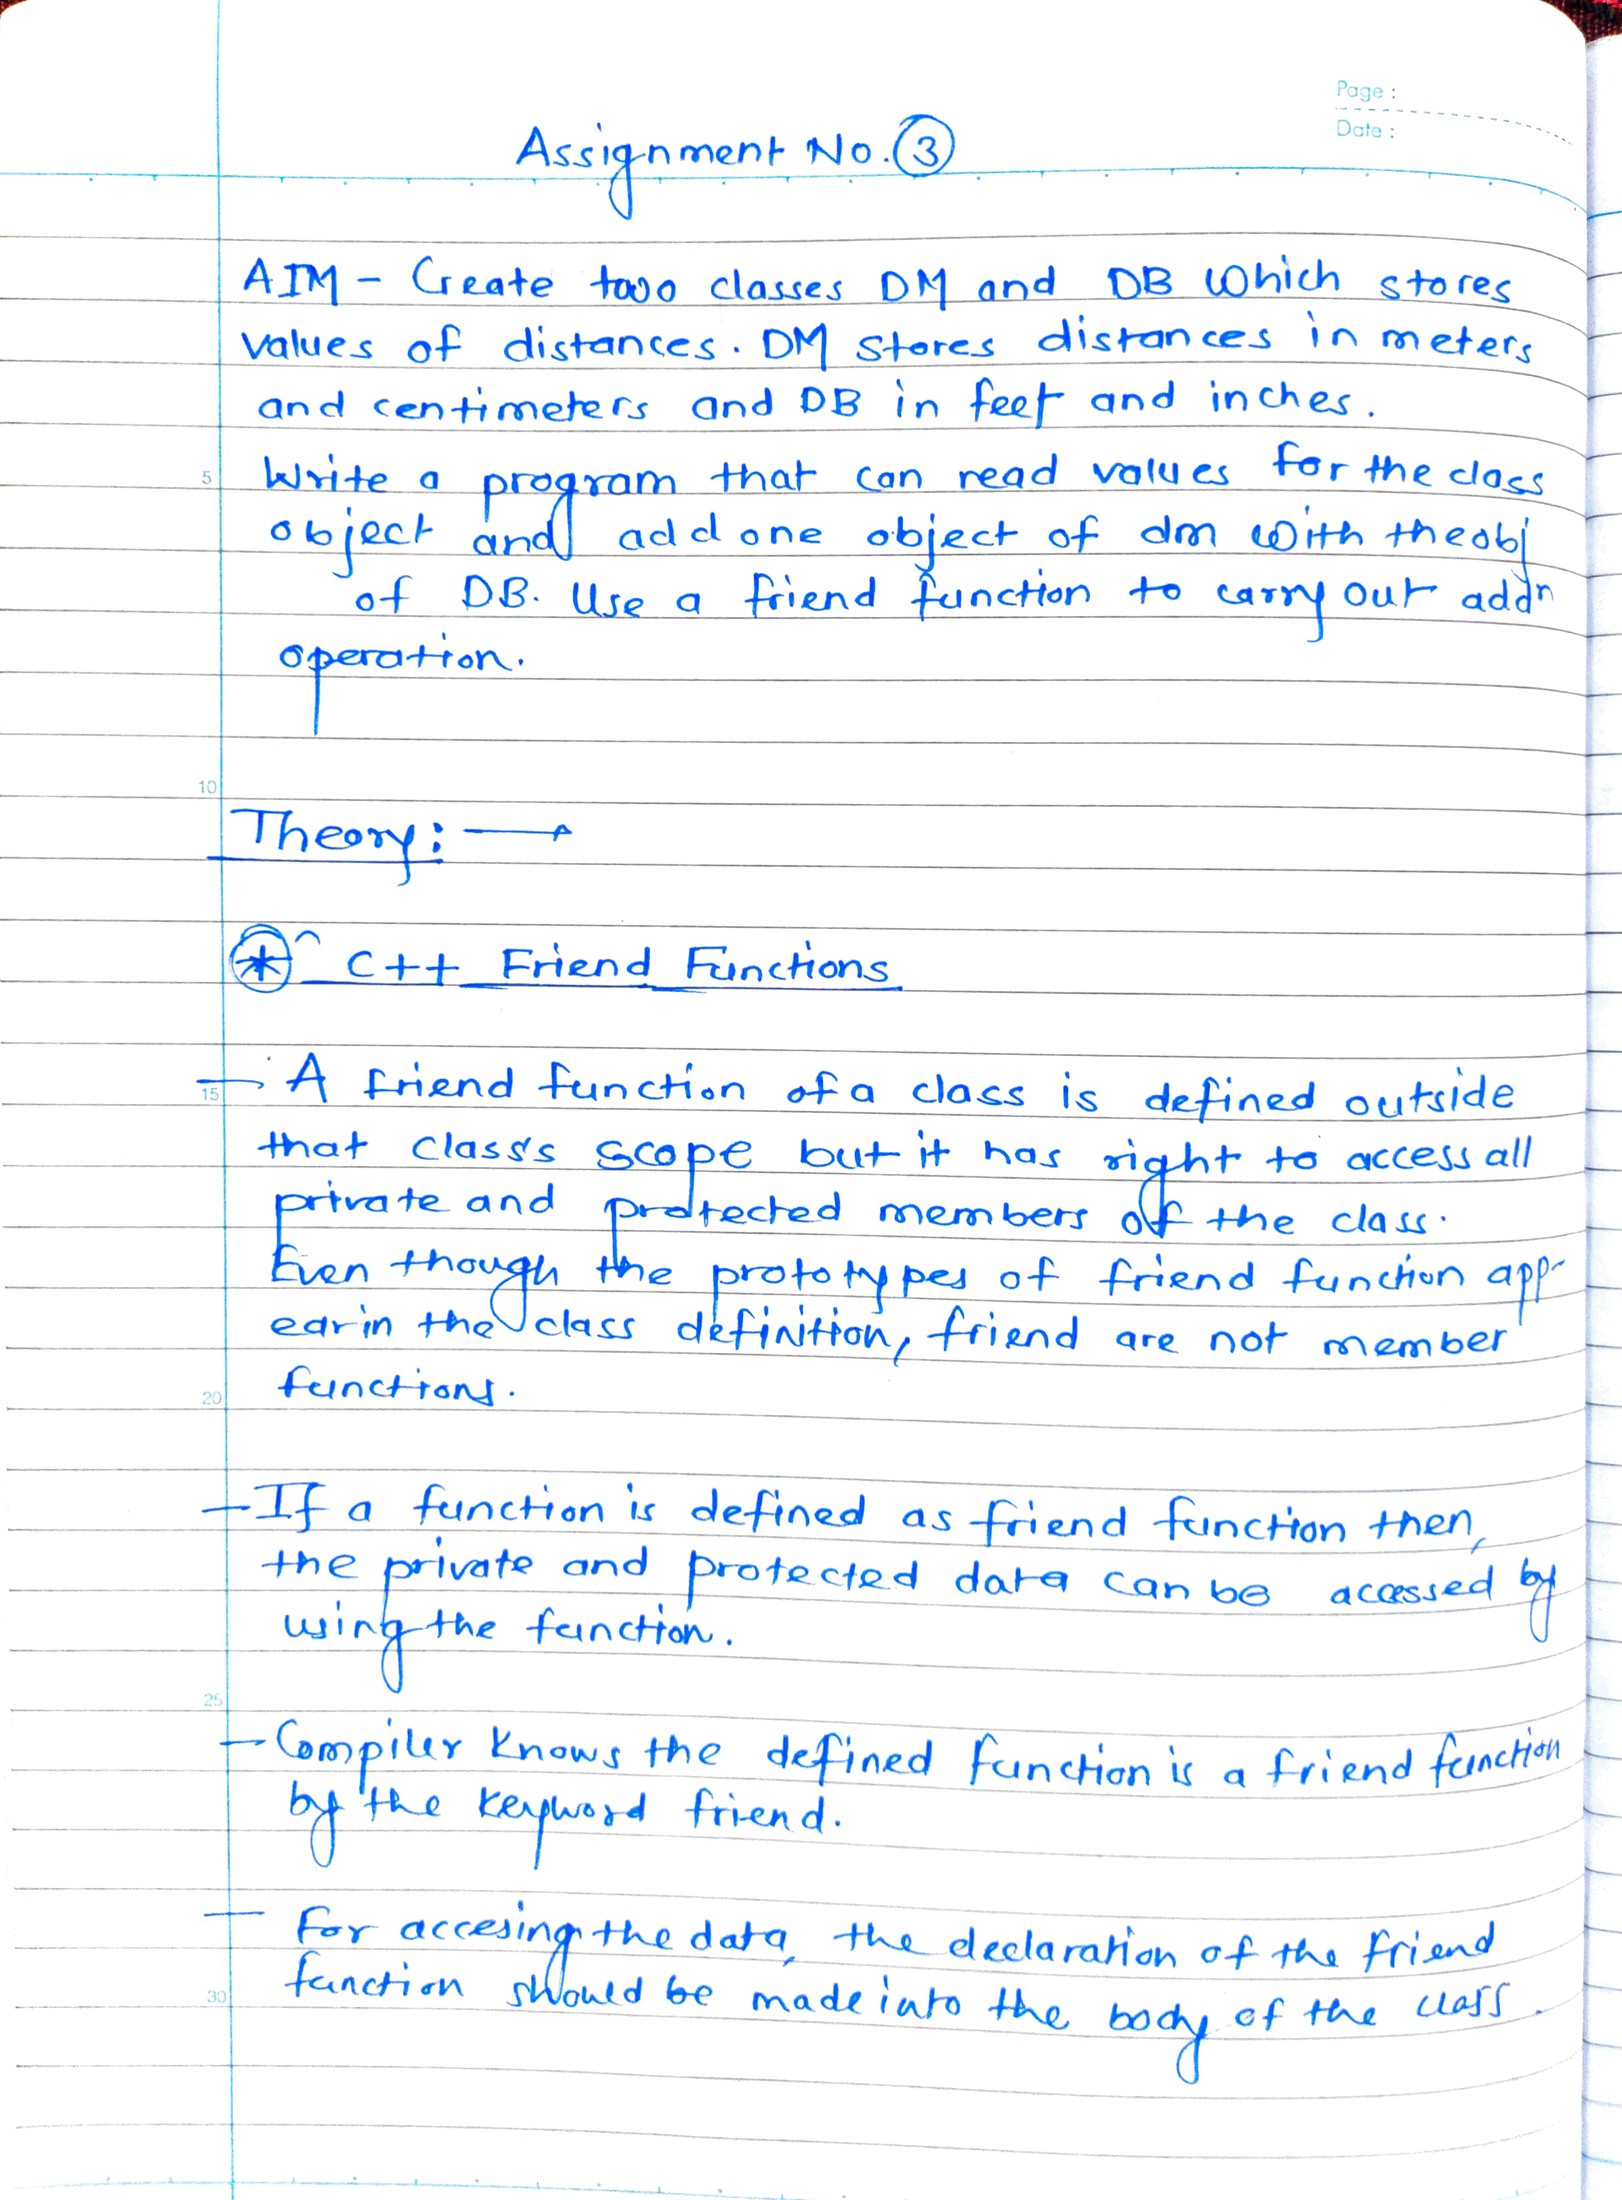 Page :
Date :
Assignment No. 3
AIM - Create two classes DM and DB which stores
values of distances. DM stores distances in meters
and centimeters and DB in feet and inches.
5
Write a program that can read values for the class
object and add one object of dm with the obj
of DB. Use a friend function to carry out addn
operation.
10
Theory: →
* C++ Friend Functions
15
— A friend function of a class is defined outside
that class's scope but it has right to access all
private and protected members of the class.
Even though the prototypes of friend function app-
ear in the class definition, friend are not member
20
functions.
— If a function is defined as friend function then,
the private and protected data can be accessed by
using the function.
25
— Compiler knows the defined function is a friend function
by the keyword friend.
— For accesing the data, the declaration of the friend
30
function should be made into the body of the class.